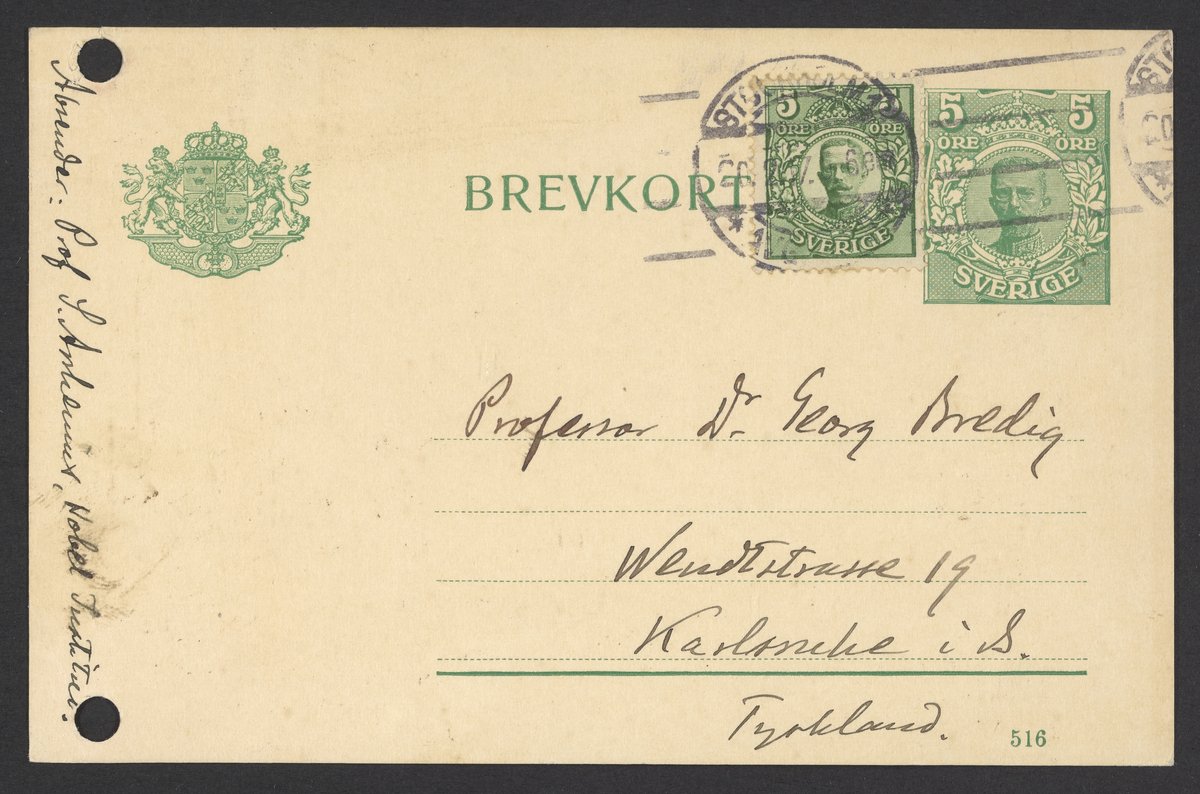 Absender: Prof S. Arrhenius, Nobel Institut.
BREVKORT
STOCKHOLM
5 5
ÖRE ÖRE
SVERIGE
5 5
ÖRE ÖRE
SVERIGE
STO
Professor Dr. Georg Bredig
Wendtstrasse 19
Karlsruhe i. B.
Tyskland.
516